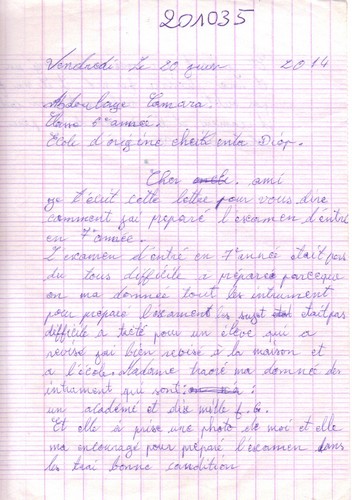 201035
Vendredi le 20 juin 2014
Abdoulaye Camara.
Classe 6e année.
Ecole d'origine cheik enta Diop.
Cher ami
je t'écrit cette lettre pour vous dire
comment j'ai préparé l'examen d'entré
en 7e année.
L'examen d'entré en 7e année était pas
du tous difficile a préparé parceque
on ma donnée tout les intrument
pour préparé l'examen les sujet était pas
difficile a traité pour un élève qui a
revisé j'ai bien revisé à la maison et
a l'école. Madame traoré ma donnée des
intrument qui sont :
un académé et dix mille f.
Et elle à prise une photo de moi et elle
ma encouragé pour préparé l'examen dans
les trai bonne condition